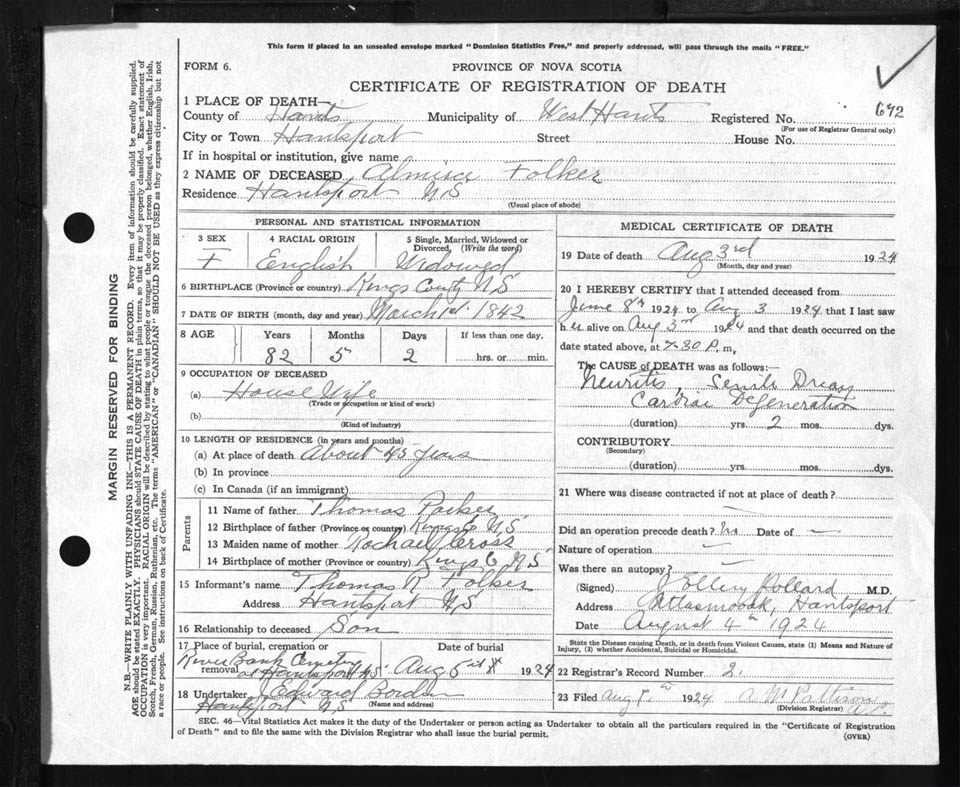 This form if placed in an unsealed envelope marked "Dominion Statistics Free," and properly addressed, will pass through the mails "FREE."
FORM 6.
PROVINCE OF NOVA SCOTIA
CERTIFICATE OF REGISTRATION OF DEATH
672
1 PLACE OF DEATH—
County of Hants Municipality of West Hants Registered No.
(For use of Registrar General only)
City or Town Hantsport Street House No.
If in hospital or institution, give name
2 NAME OF DECEASED Folker
Residence Hantsport N.S
(Usual place of abode)
PERSONAL AND STATISTICAL INFORMATION
3 SEX 4 RACIAL ORIGIN 5 Single, Married, Widowed or Divorced, (Write the word)
F English Widowed
6 BIRTHPLACE (Province or country) Kings County N.S
7 DATE OF BIRTH (month, day and year) March 1st. 1842
8 AGE Years Months Days If less than one day,
82 5 2 hrs. or min.
9 OCCUPATION OF DECEASED
(a) House Wife
(Trade or occupation or kind of work)
(b)
(Kind of industry)
10 LENGTH OF RESIDENCE (in years and months)
(a) At place of death About 45 years
(b) In province
(c) In Canada (if an immigrant)
Parents
11 Name of father Thomas
12 Birthplace of father (Province or country) Kings Co N.S.
13 Maiden name of mother Rachael Cross
14 Birthplace of mother (Province or country) Kings Co N.S
15 Informant's name Thomas R Folker
Address Hantsport N.S
16 Relationship to deceased Son
17 Place of burial, cremation or removal Date of burial
River Bank Cemetery
at Hantsport N.S. Aug 5 1924
18 Undertaker Edward Borden
Hantsport N.S (Name and address)
MEDICAL CERTIFICATE OF DEATH
19 Date of death Aug 3rd 1924
(Month, day and year)
20 I HEREBY CERTIFY that I attended deceased from
June 8th 1924 to Aug 3 1924 that I last saw
h er alive on Aug 3rd 1924 and that death occurred on the
date stated above, at 7-30 P. m,
The CAUSE of DEATH was as follows:—
Neuritis, Senile
Cardiac Degeneration
(duration) yrs. 2 mos. dys.
CONTRIBUTORY
(Secondary)
(duration) yrs. mos. dys.
21 Where was disease contracted if not at place of death?
Did an operation precede death? No Date of —
Nature of operation —
Was there an autopsy? —
(Signed) Pollard M.D.
Address Hantsport
Date August 4th 1924
State the Disease causing Death, or in death from Violent Causes, state (1) Means and Nature of Injury, (2) whether Accidental, Suicidal or Homicidal.
22 Registrar's Record Number 2.
23 Filed Aug 1924
(Division Registrar)
SEC. 46—Vital Statistics Act makes it the duty of the Undertaker or person acting as Undertaker to obtain all the particulars required in the "Certificate of Registration
of Death" and to file the same with the Division Registrar who shall issue the burial permit.
(OVER)
MARGIN RESERVED FOR BINDING
N.B.—WRITE PLAINLY WITH UNFADING INK—THIS IS A PERMANENT RECORD. Every item of information should be carefully supplied.
AGE should be stated EXACTLY. PHYSICIANS should STATE CAUSE OF DEATH in plain terms, so that it may be properly classified. Exact statement of
OCCUPATION is very important. RACIAL ORIGIN will be described by stating to what people or tongue the deceased person belonged, whether English, Irish,
Scotch, French, German, Russian, Ruthenian, etc. The terms "AMERICAN" or "CANADIAN" SHOULD NOT BE USED as they express citizenship but not
a race or people. See instructions on back of Certificate.